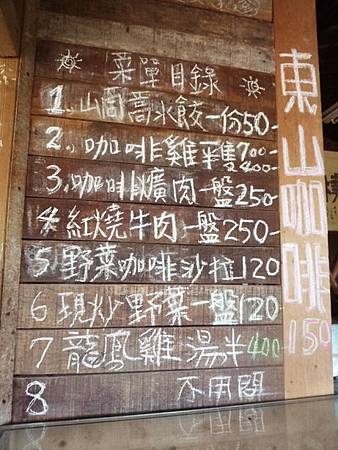 菜單目錄
1. 山茼蒿水餃一份50-
2. 咖啡雞隻700-
400-
3. 咖啡爌肉一盤250-
4 紅燒牛肉一盤250-
5 野菜咖啡沙拉120
6 現炒野菜一盤120
7 龍鳳雞湯半400
8 不用問
東山咖啡150